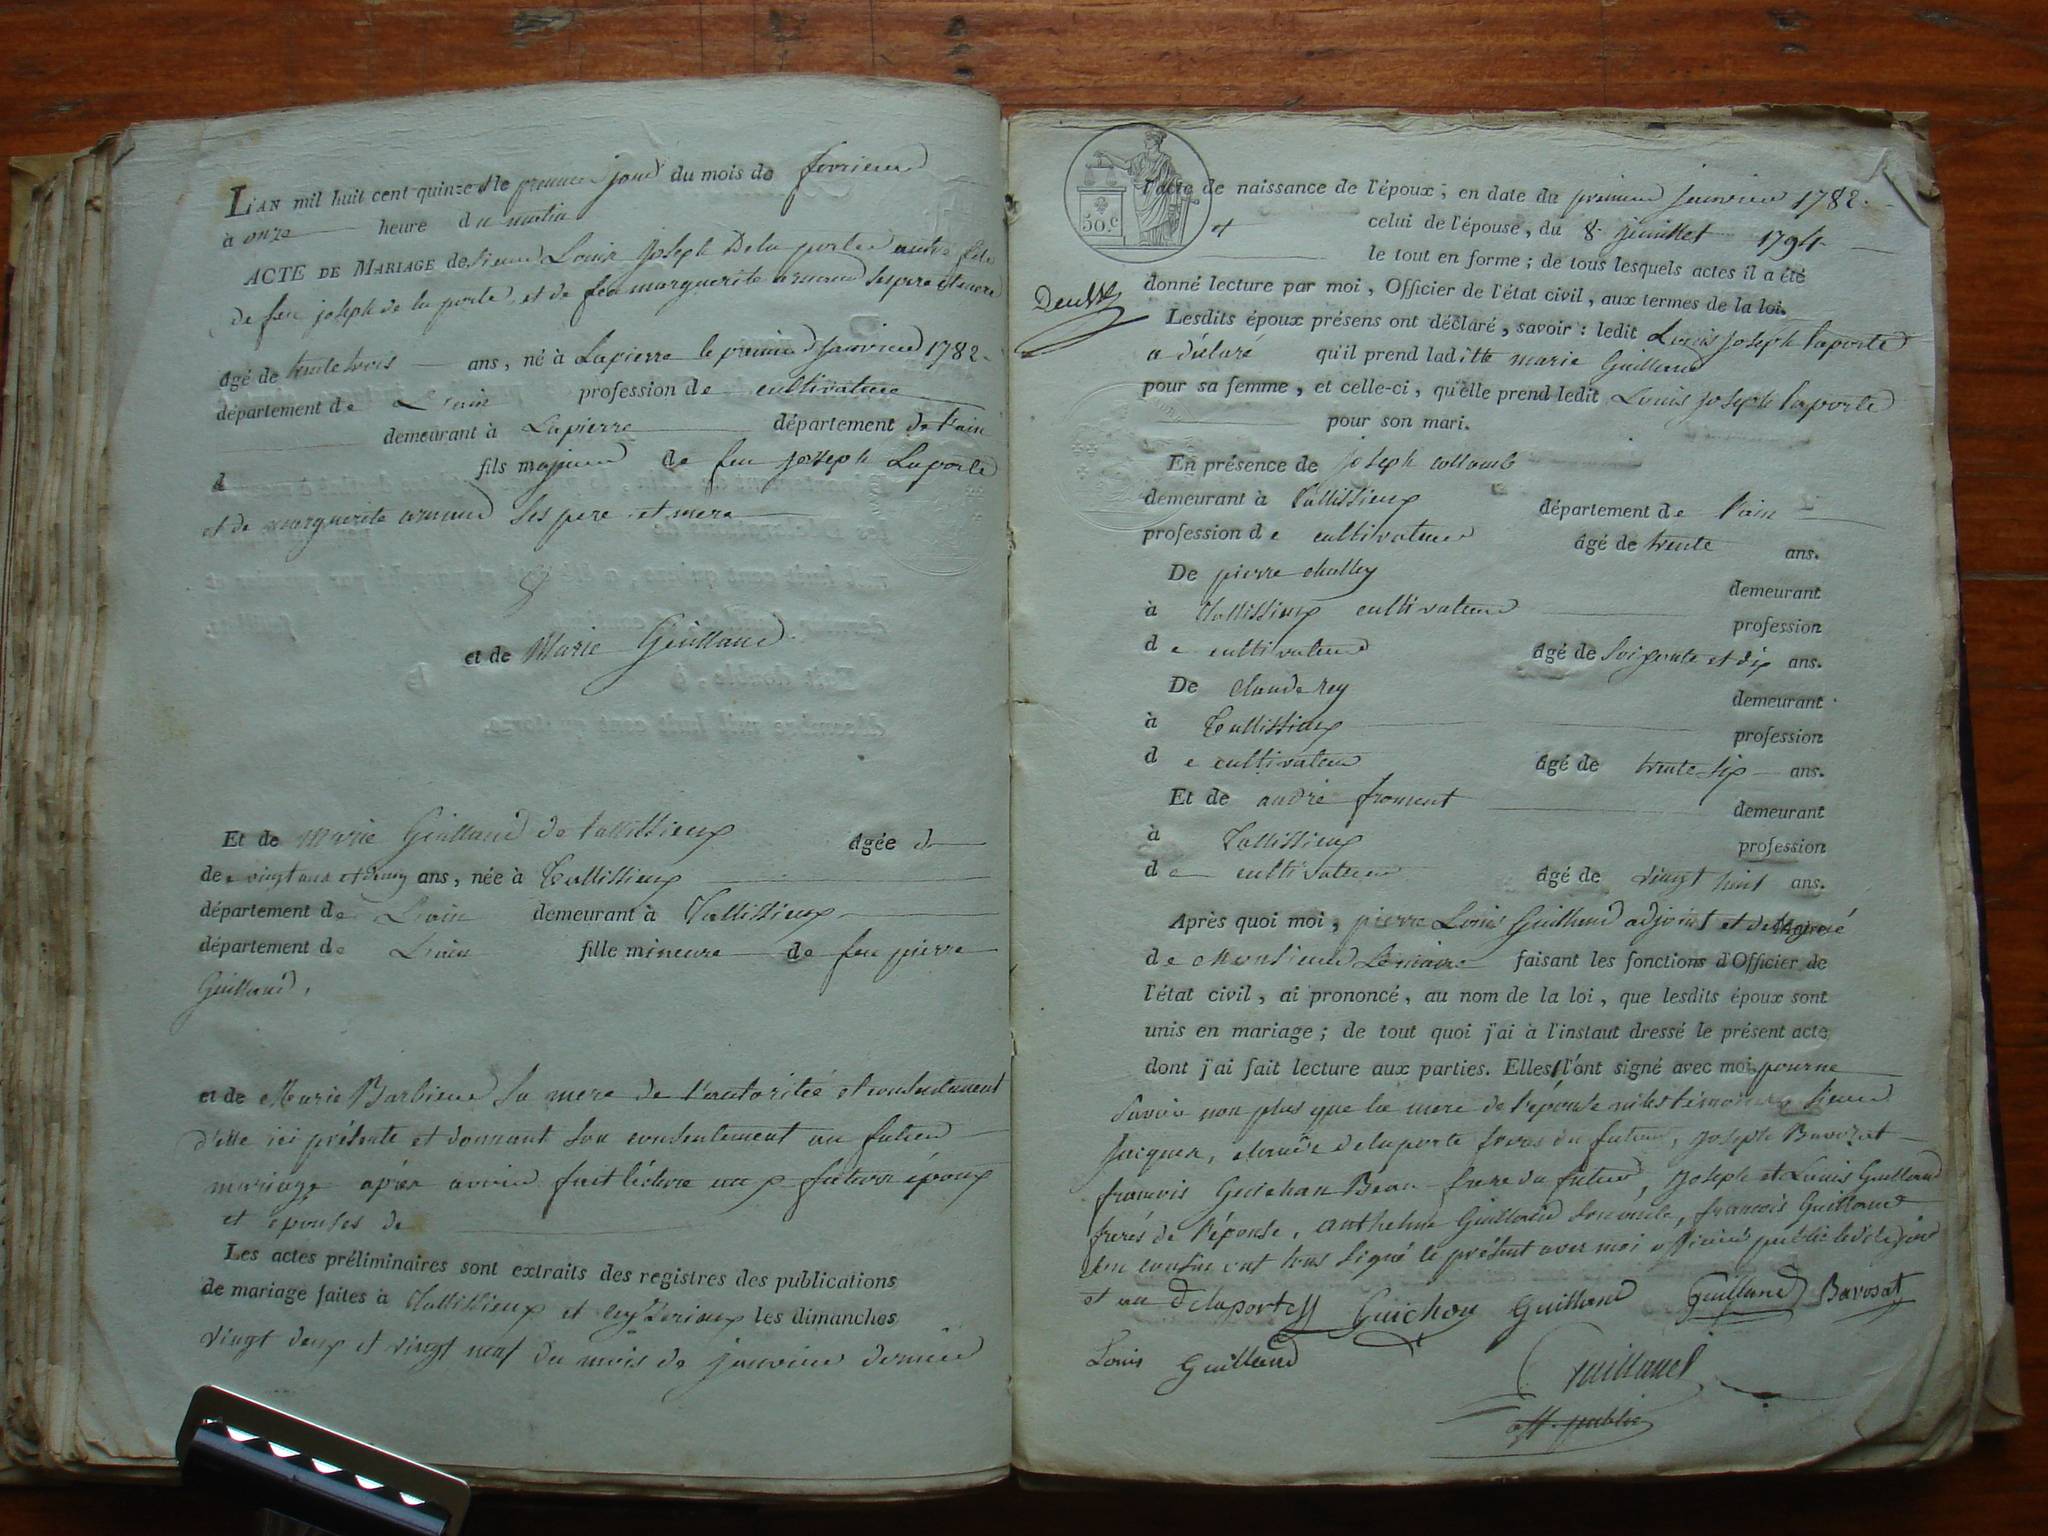 L'AN mil huit cent quinze & le premier jour du mois de fevrieur
à onze heure du matin
ACTE DE MARIAGE de Sieur Louis Joseph Dela porte autre fils
de feu joseph de la porte et de feu marguerite armand ses pere et mere
âgé de trente trois ans, né à Lapierre le premier janvier 1782
département de L'ain profession de cultivateur
demeurant à Lapierre département de l'ain
d fils majeur de feu joseph Laporte
et de marguerite armand ses pere et mere
et de Marie Guilland
Et de Marie Guilland de tallissieux agée d
de vingt ans et demy ans, née à Tallissieux
département de L'ain demeurant à Tallissieux
département de L'ain fille mineure de feu pierre
Guilland,
et de Marie Barbier sa mere de l'autoritée et consentement
d'elle ici présente et donnant son consentement au futeur
mariage après avoir fait lecture aux futurs époux
et epouses de
Les actes préliminaires sont extraits des registres des publications
de mariage faites à Tallissieux et Ceyzerieux les dimanches
vingt deux et vingt neuf du mois de janvier dernier
50.c
l'acte de naissance de l'époux; en date du premier janvier 1782.
et celui de l'épouse, du 8 juillet 1794
le tout en forme; de tous lesquels actes il a été
donné lecture par moi, Officier de l'état civil, aux termes de la loi.
Lesdits époux présens ont déclaré, savoir: ledit Louis joseph laporte
a déclaré qu'il prend laditte marie Guilland
pour sa femme, et celle-ci, qu'elle prend ledit Louis joseph laporte
pour son mari.
En présence de joseph collomb
demeurant à Tallissieux département de l'ain
profession de cultivateur âgé de trente ans.
De pierre challey demeurant
à Tallissieux cultivateur profession
de cultivateur âgé de soixente et dix ans.
De claude rey demeurant
à Tallissieux profession
de cultivateur âgé de trente six ans.
Et de andré froment demeurant
à Tallissieux profession
de cultivateur âgé de vingt huit ans.
Après quoi moi, pierre Louis Guilland adjoint et Maire
de Monsieur Lemaire faisant les fonctions d'Officier de
l'état civil, ai prononcé, au nom de la loi, que lesdits époux sont
unis en mariage; de tout quoi j'ai à l'instant dressé le présent acte
dont j'ai fait lecture aux parties. Elles l'ont signé avec moi pour ne
savoir non plus que la mere de l'épouse ni les témoins Sieur
Jacques, claude delaporte freres du futeur, joseph Bavozat
francois Guichon Beau frere du futeur, joseph et Louis Guilland
freres de l'épouse, anthelme Guilland son oncle, francois Guilland
son cousin ont tous signé le présent avec moi officier public ledit jour
et an Delaporte Guichon Guilland Guilland Bavosat
Louis Guilland
Guilland
off. public